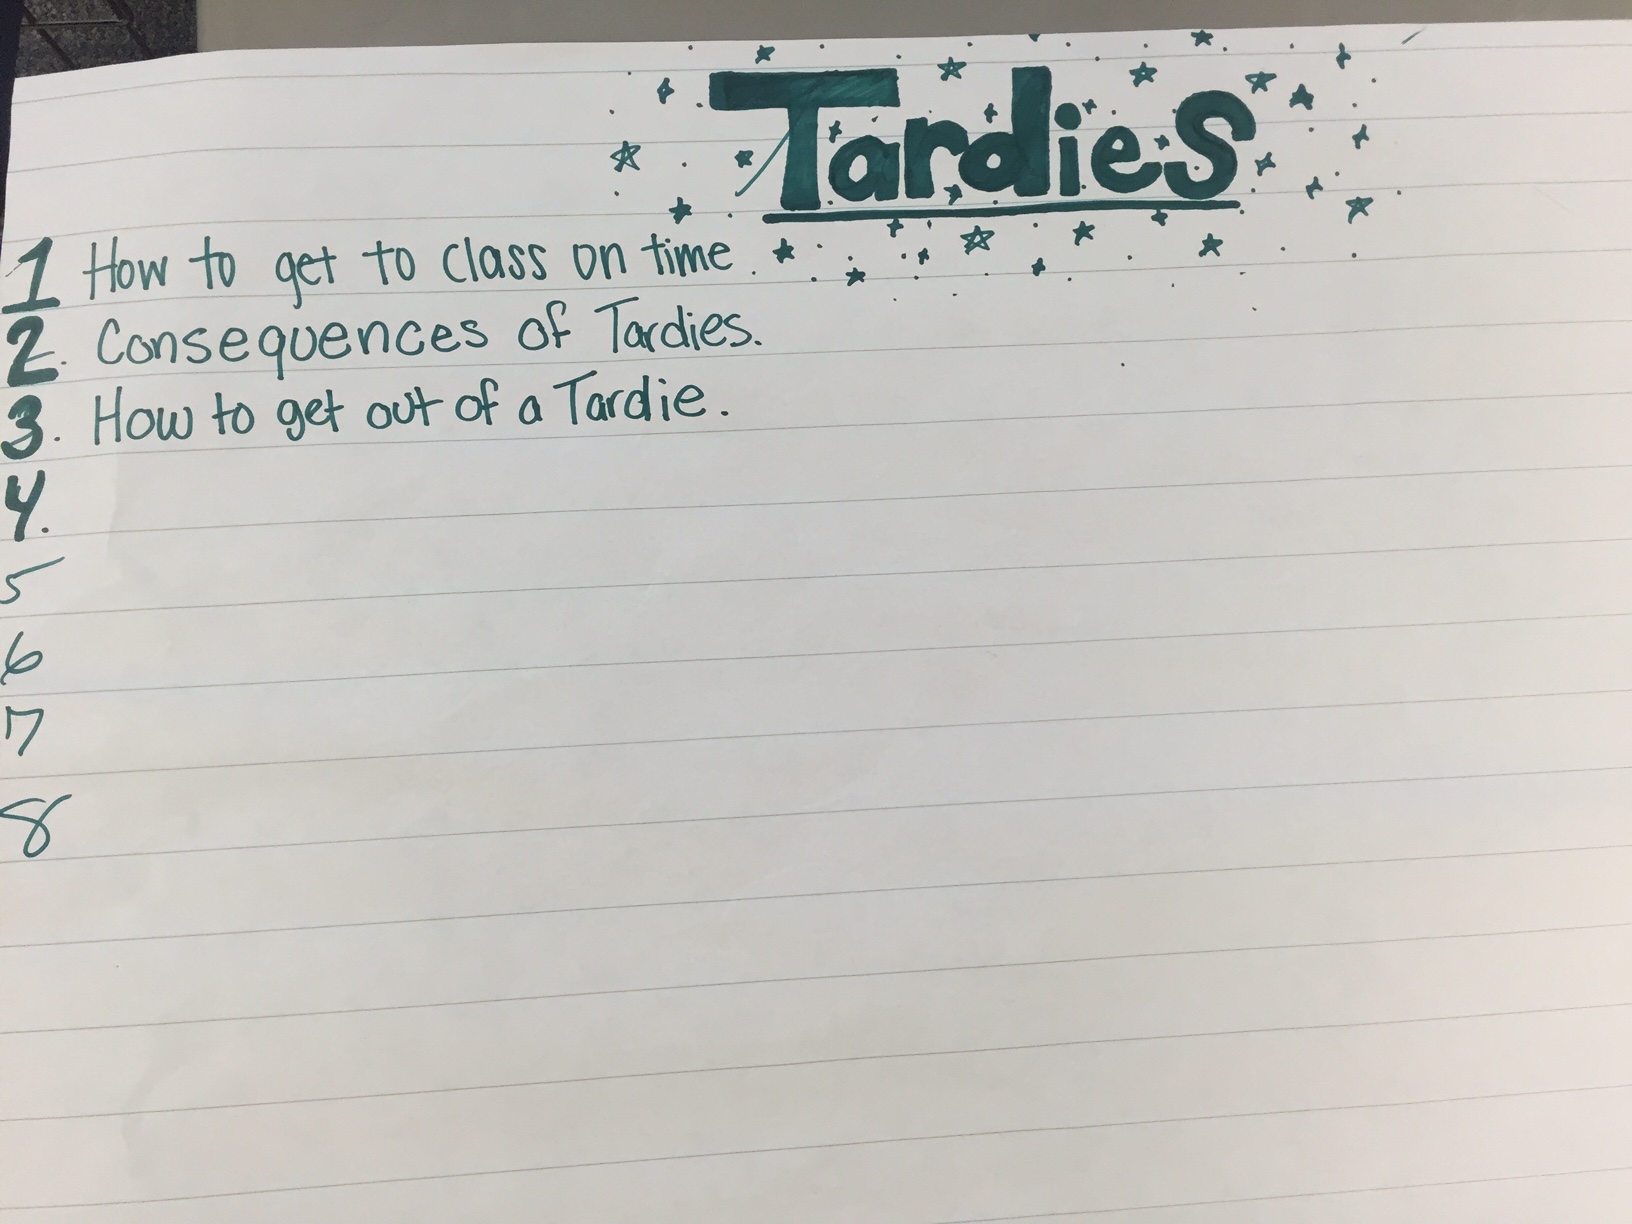 Tardies
1 How to get to class on time.
2. Consequences of Tardies.
3. How to get out of a Tardie.
4.
5
6
7
8